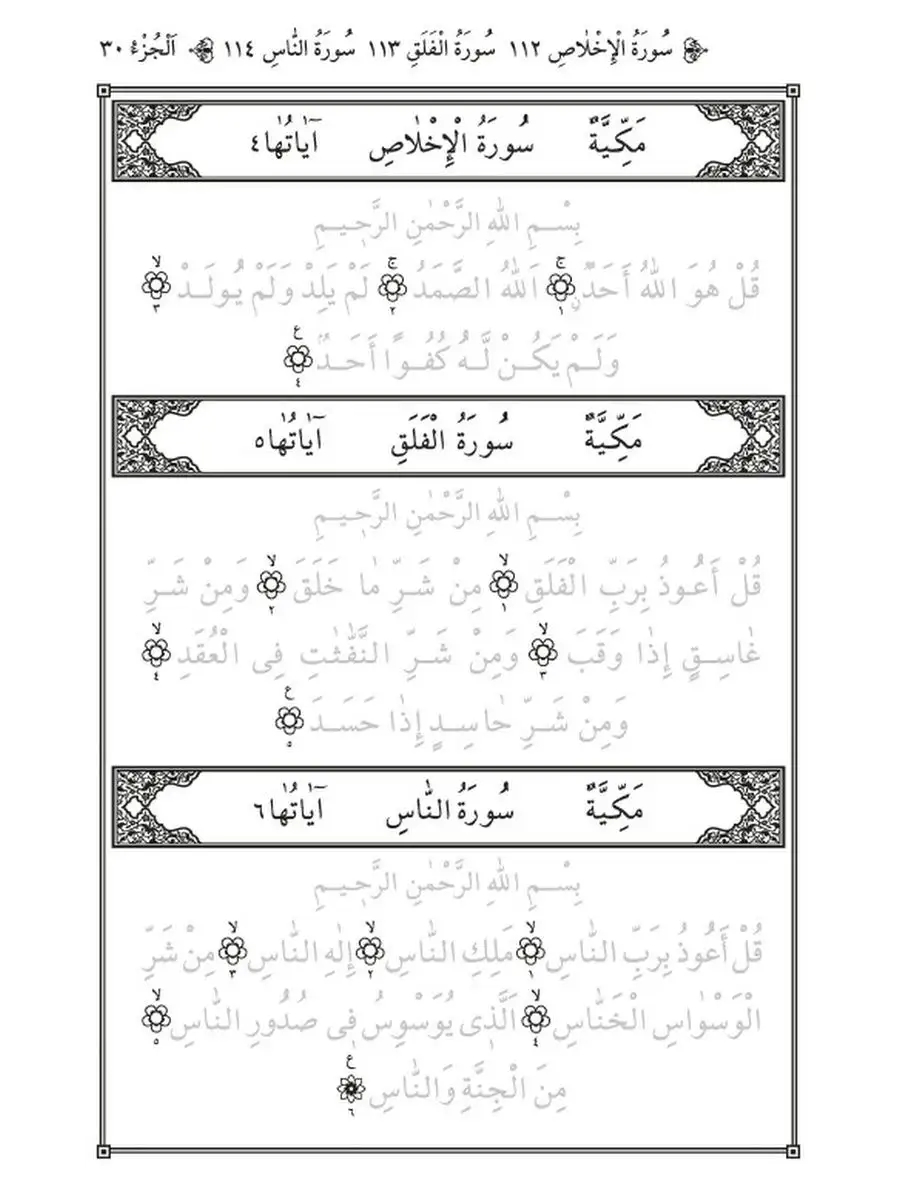 سُورَةُ الْإِخْلَاصِ ١١٢ سُورَةُ الْفَلَقِ ١١٣ سُورَةُ النَّاسِ ١١٤ اَلْجُزْءُ ٣٠
مَكِّيَّةٌ سُورَةُ الْإِخْلَاصِ آيَاتُهَا ٤
بِسْمِ اللهِ الرَّحْمٰنِ الرَّحِيمِ
قُلْ هُوَ اللهُ أَحَدٌ ۚ ١ اَللهُ الصَّمَدُ ۚ ٢ لَمْ يَلِدْ وَلَمْ يُولَدْ ۙ ٣
وَلَمْ يَكُنْ لَّهُ كُفُوًا أَحَدٌ ع ٤
مَكِّيَّةٌ سُورَةُ الْفَلَقِ آيَاتُهَا ٥
بِسْمِ اللهِ الرَّحْمٰنِ الرَّحِيمِ
قُلْ أَعُوذُ بِرَبِّ الْفَلَقِ ۙ ١ مِنْ شَرِّ مَا خَلَقَ ۙ ٢ وَمِنْ شَرِّ
غَاسِقٍ إِذَا وَقَبَ ۙ ٣ وَمِنْ شَرِّ النَّفّٰثٰتِ فِى الْعُقَدِ ۙ ٤
وَمِنْ شَرِّ حَاسِدٍ إِذَا حَسَدَ ع ٥
مَكِّيَّةٌ سُورَةُ النَّاسِ آيَاتُهَا ٦
بِسْمِ اللهِ الرَّحْمٰنِ الرَّحِيمِ
قُلْ أَعُوذُ بِرَبِّ النَّاسِ ۙ ١ مَلِكِ النَّاسِ ۙ ٢ إِلٰهِ النَّاسِ ۙ ٣ مِنْ شَرِّ
الْوَسْوَاسِ الْخَنَّاسِ ۙ ٤ اَلَّذِى يُوَسْوِسُ فِى صُدُورِ النَّاسِ ۙ ٥
مِنَ الْجِنَّةِ وَالنَّاسِ ع ٦